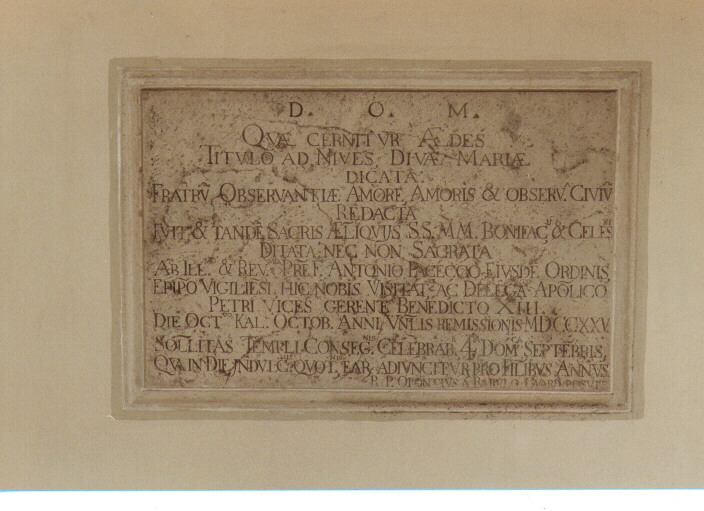 D. O. M.
QVÆ CERNITVR ÆDES
TITVLO AD NIVES, DIVÆ MARIÆ
DICATA
FRATRŨ, OBSERVANTIÆ AMORE, AMORIS & OBSERV. CIVIŨ
REDACTA
FVIT, & TANDẼ SACRIS ÆLIQVIJS S.S. M.M. BONIFAC. & CELES
DITATA: NEC NON SACRATA
AB ILL. & REV. PR̃E F. ANTONIO PACECCO EIVSDE ORDINIS
EPIP̃O VIGILIESI, HIC NOBIS VISITAT. AC DELEGA APOLICO
PETRI VICES GERENTE BENEDICTO XIII.
DIE OCT. KAL. OCTOB. ANNI, VNLIS REMISSIONIS MDCCXXV.
SOLLITAS TEMPLI CONSEG. CELEBRAB. 4. DOM. SEPTEBRIS,
QVA IN DIE INDVLG. QUOT. ADIVNCITVR PRO FILIBVS ANNVS
R. P.